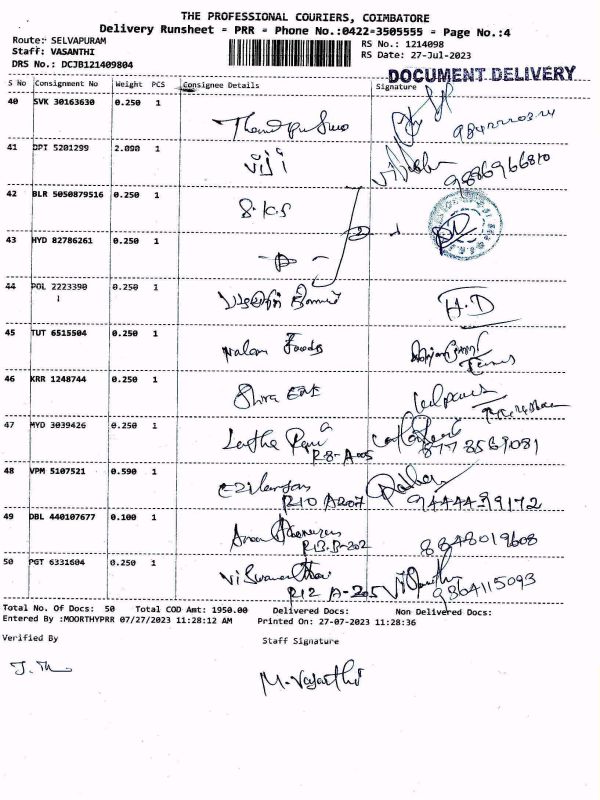 THE PROFESSIONAL COURIERS, COIMBATORE
Delivery Runsheet - PRR - Phone No.:0422-3505555 - Page No.:4
Route: SELVAPURAM
Staff: VASANTHI
DRS No.: DCJB121409804
RS No.: 1214098
RS Date: 27-Jul-2023
DOCUMENT DELIVERY
S No Consignment No Weight PCS Consignee Details Signature
40 SVK 30163630 0.250 1
41 DPT 5201299 2.090 1
விஜி
9886966810
42 BLR 5050879516 0.250 1
S.K.S
43 HYD 82786261 0.250 1
44 POL 2223390 0.250 1
H.D
45 TUT 6515504 0.250 1
Nalam Foods
46 KRR 1248744 0.250 1
Shiva ENT
47 MYD 3039426 0.250 1
Latha Rani
R8-A-005 8778569081
48 VPM 5107521 0.590 1
Ezhilarasan
R10 A207 9444499172
49 DBL 440107677 0.100 1
R13.B-202 8848019608
50 PGT 6331604 0.250 1
Viswanathan
R12 A-205 9864115093
Total No. Of Docs: 50 Total COD Amt: 1950.00 Delivered Docs: Non Delivered Docs:
Entered By :MOORTHYPRR 07/27/2023 11:28:12 AM Printed On: 27-07-2023 11:28:36
Verified By Staff Signature
M. Vasanthi